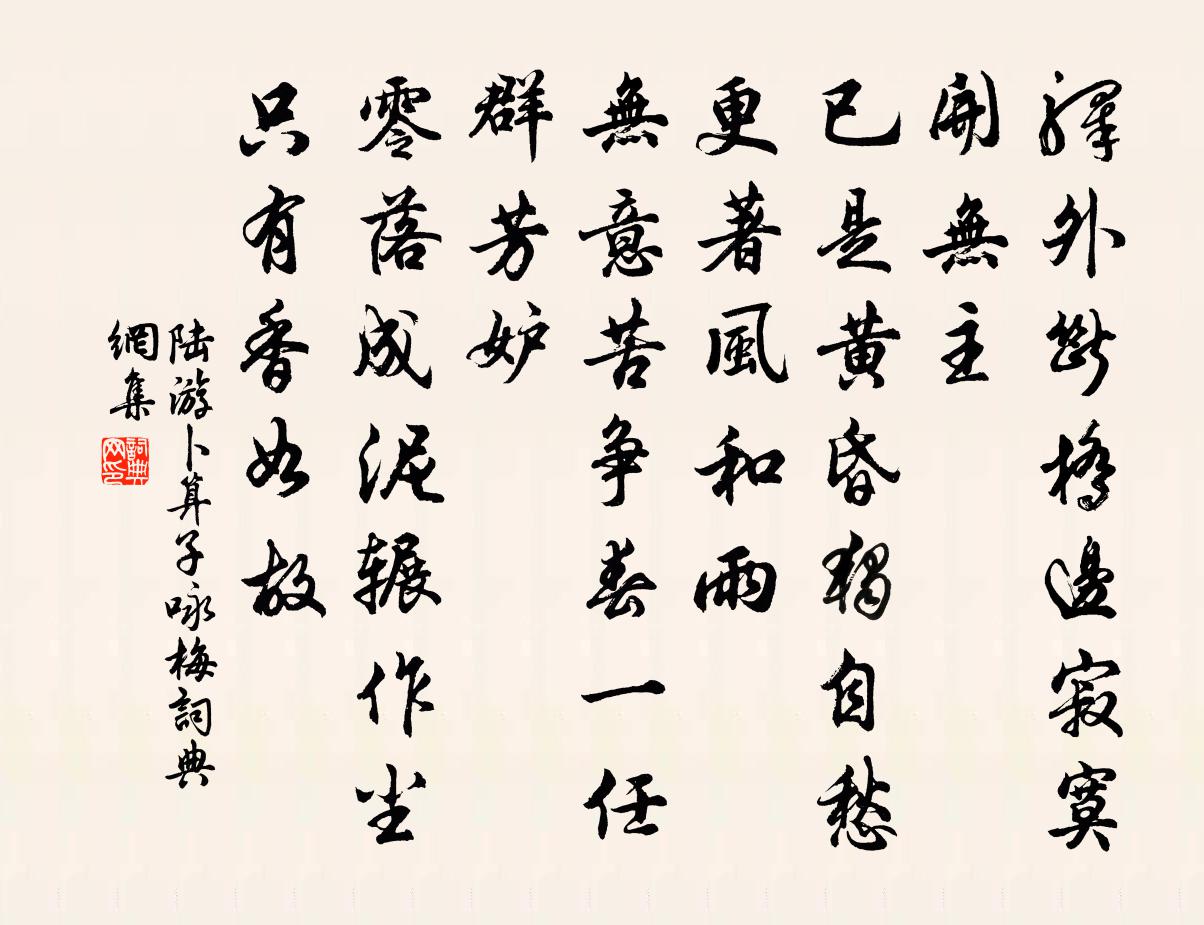 驛外斷橋邊寂寞
開無主
已是黃昏獨自愁
更著風和雨
無意苦爭春一任
群芳妒
零落成泥辗作尘
只有香如故
陆游卜算子咏梅詞典
網集
詞典
网印